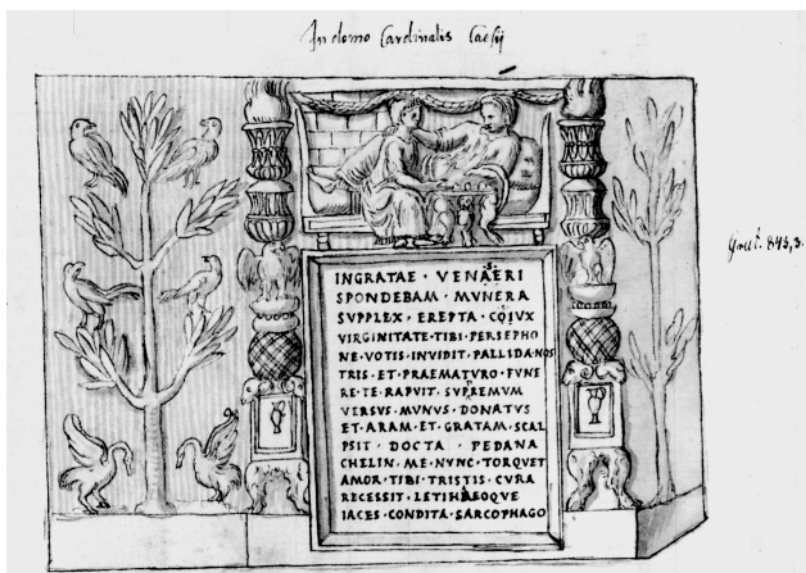 In domo Cardinalis Caesij
Grut. 843,3.
INGRATAE · VENAERI
SPONDEBAM · MVNERA
SVPPLEX · EREPTA · COIVX
VIRGINITATE · TIBI · PERSEPHO
NE · VOTIS · INVIDIT · PALLIDA · NOS
TRIS · ET · PRAEMATVRO · FVNE
RE · TE · RAPVIT · SVPREMVM
VERSVS · MVNVS · DONATVS
ET · ARAM · ET · GRATAM · SCAL
PSIT · DOCTA · PEDANA
CHELIN · ME · NVNC · TORQVET
AMOR · TIBI · TRISTIS · CVRA
RECESSIT · LETIHAEOQVE
IACES · CONDITA · SARCOPHAGO